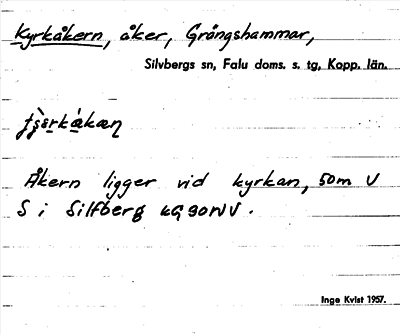 Kyrkåkern, åker, Grängshammar,
Silvbergs sn, Falu doms. s. tg, Kopp. län.
Åkern ligger vid kyrkan, 50m V
S i Silfberg
Inge Kvist 1957.